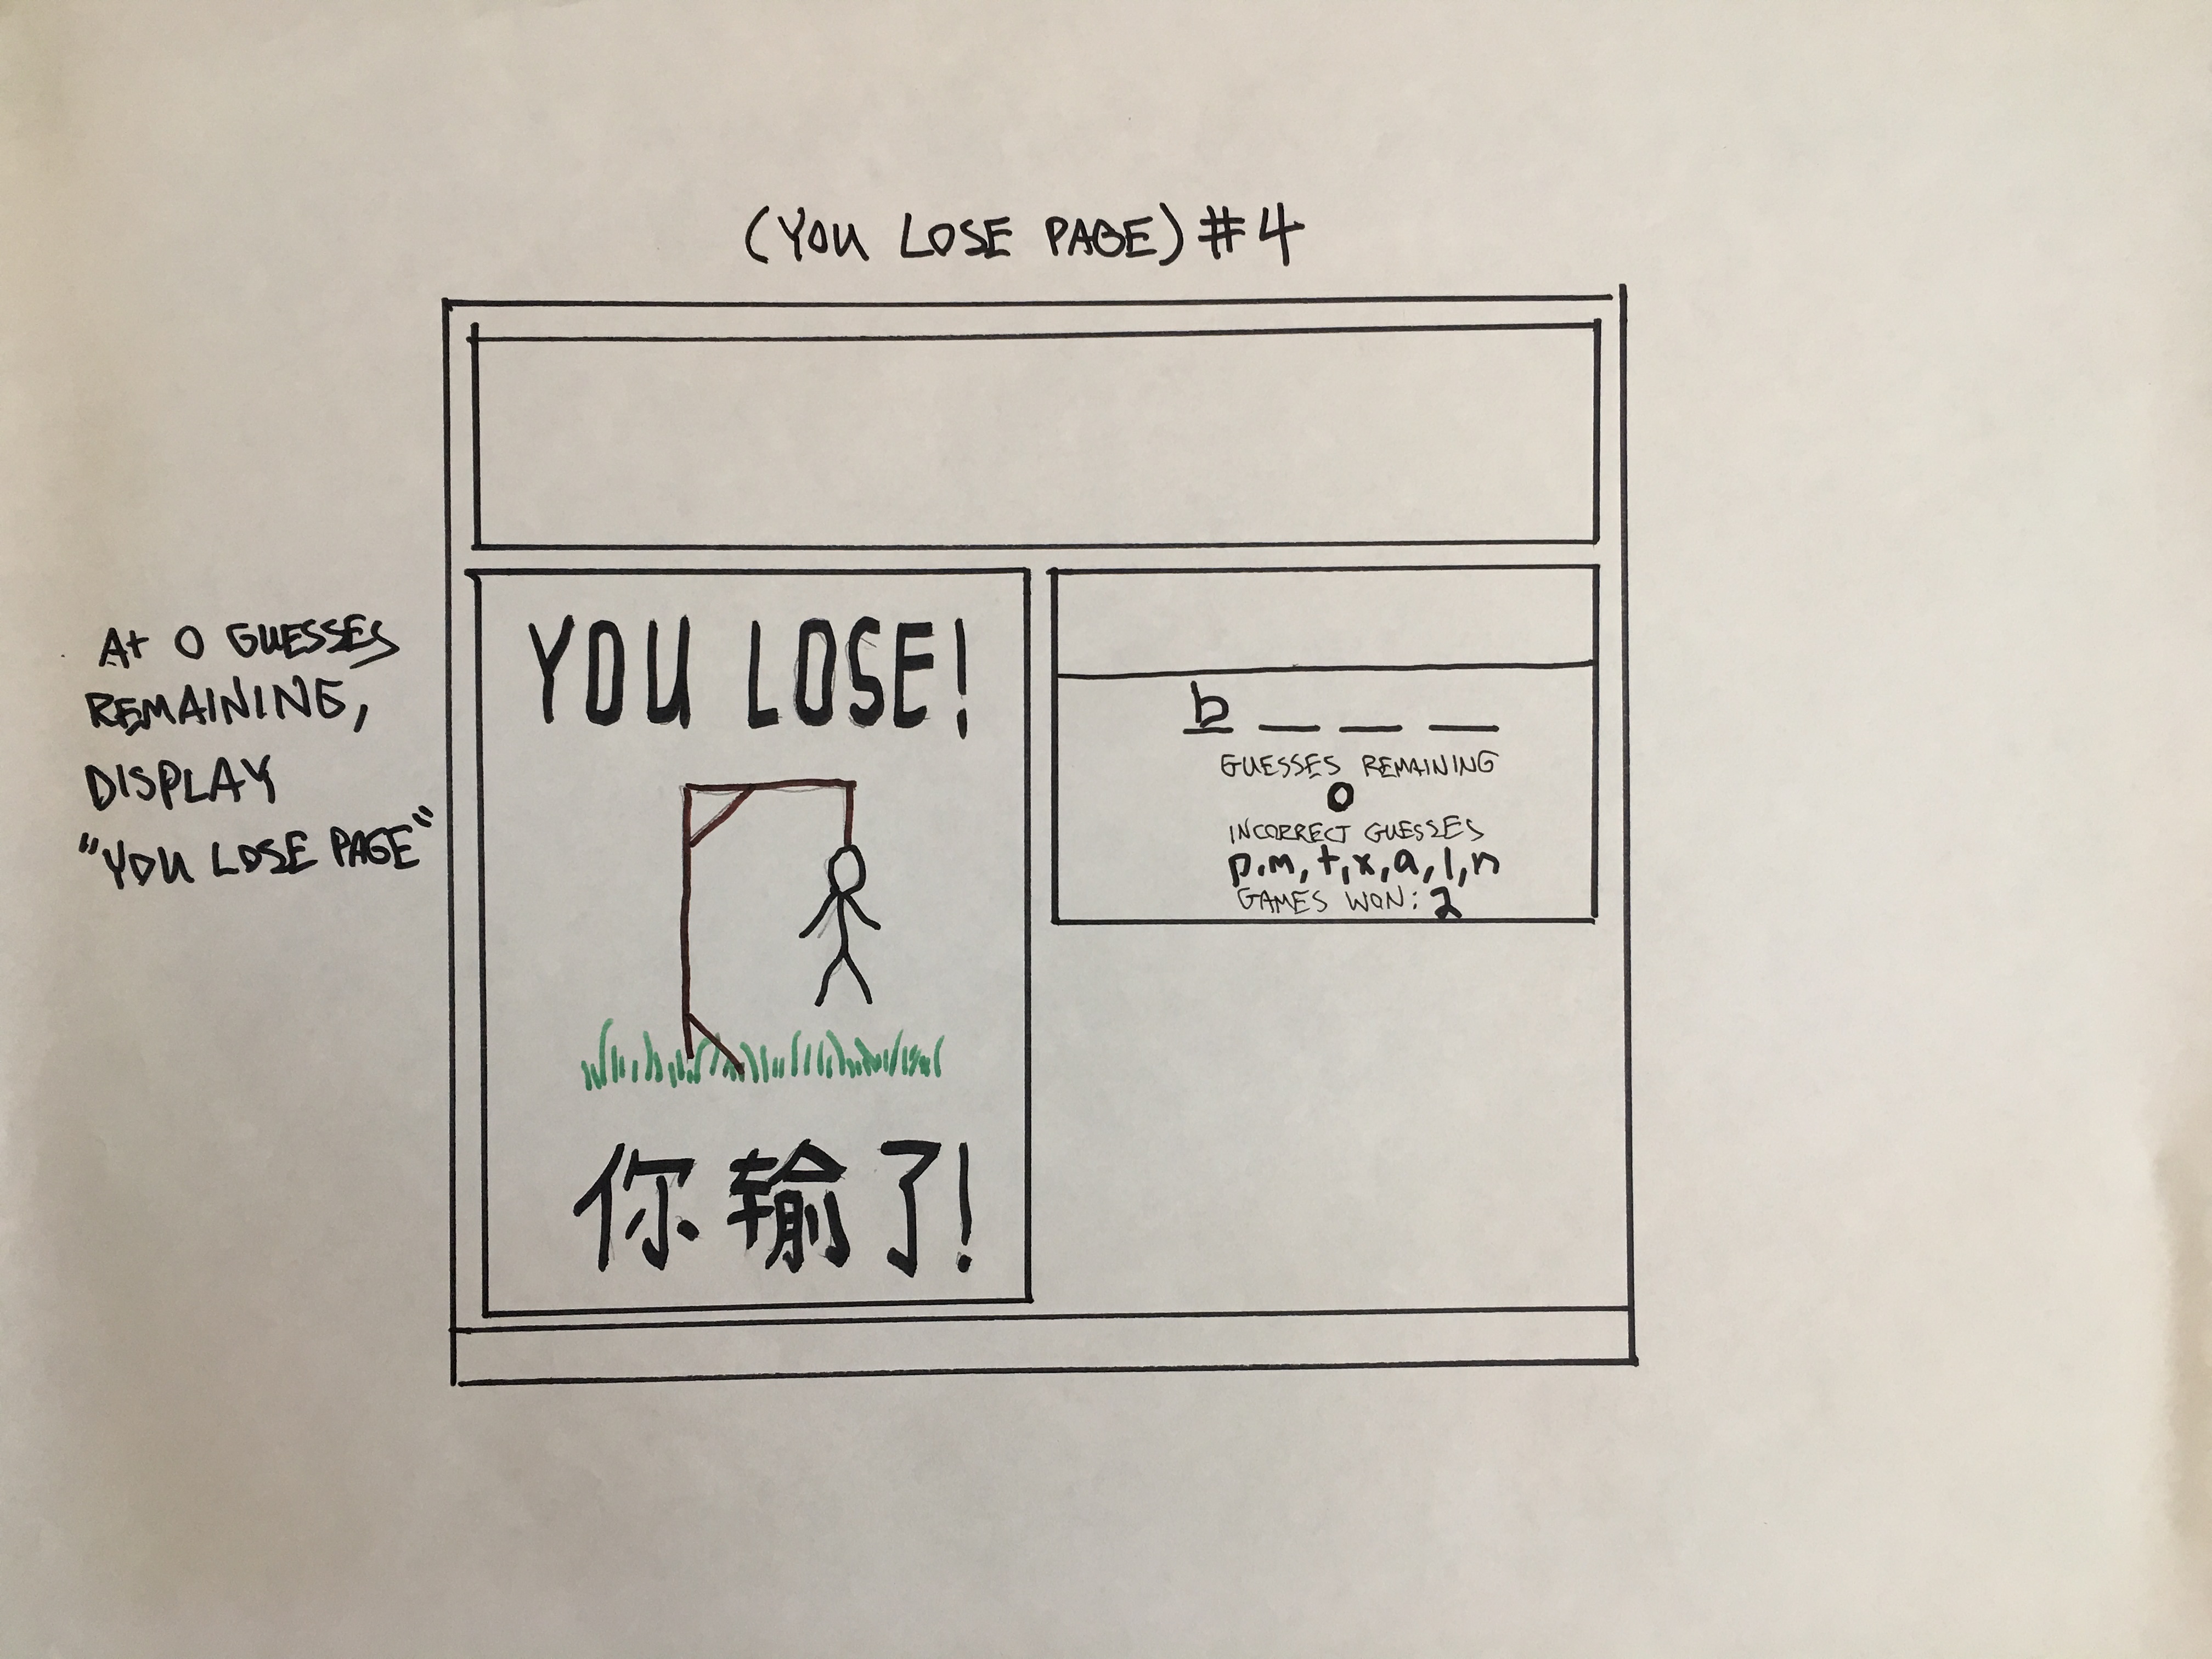 (YOU LOSE PAGE) #4
At 0 GUESSES
REMAINING,
DISPLAY
"YOU LOSE PAGE"
YOU LOSE!
你输了!
b _ _ _
GUESSES REMAINING
0
INCORRECT GUESSES
p,m,t,x,a,l,n
GAMES WON: 2